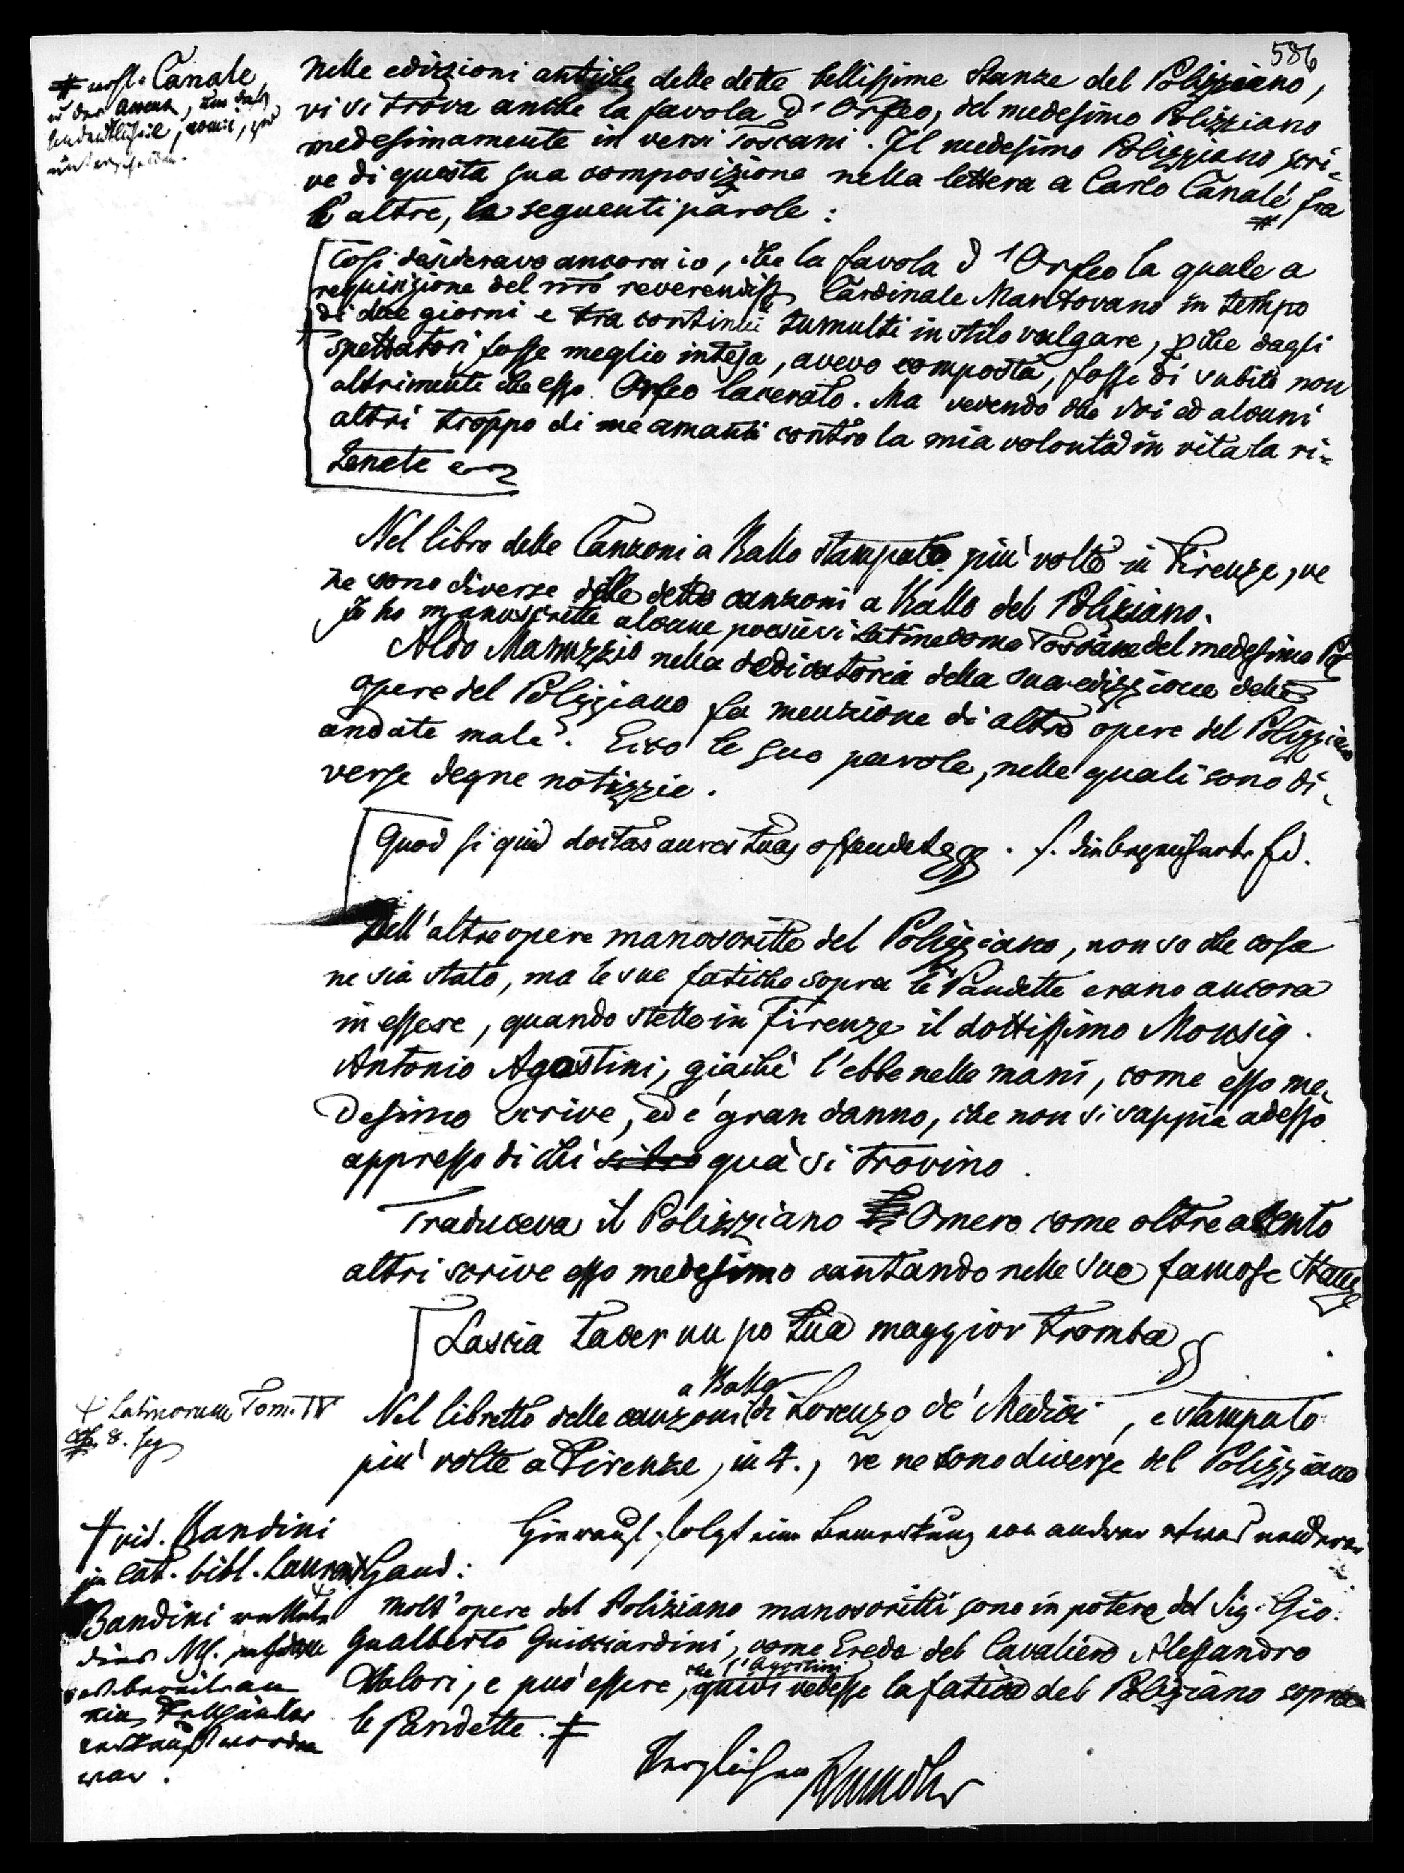 586
# Canale
Nelle edizzioni antiche delle dette bellissime Stanze del Polizziano,
vi si trova anche la favola d'Orfeo, del medesimo Polizziano
medesimamente in versi Toscani. Il medesimo Polizziano scri=
ve di questa sua composizione nella lettera a Carlo Canale fra
#
l'altre, le seguenti parole:
Così desideravo ancora io, che la favola d'Orfeo la quale a
requisizione del reverendiss. Cardinale Mantovano in tempo
di due giorni e tra continui tumulti in stilo vulgare, pche dagli
spettatori fosse meglio intesa, avevo composta, fosse di subito non
altrimenti che esso Orfeo lacerato. Ma vedendo che voi ed alcuni
altri troppo di me amanti contro la mia volontà in vita la ri=
tenete
Nel libro delle Canzoni a Ballo stampate più volte in Firenze, ve
ne sono diverse delle dette canzoni a Ballo del Poliziano.
Io ho manoscritte alcune poesie si Latine come Toscane del medesimo Pol
Aldo Manuzzio nella dedicatoria della sua edizzione delle
opere del Polizziano fa menzione di altre opere del Polizziano
andate male. Ecco le sue parole, nelle quali sono di=
verse degne notizzie.
Quod si quid doctas aures tuas offendet
Dell'altre opere manoscritte del Polizziano, non so che cosa
ne sia stato, ma le sue fatiche sopra le Pandette erano ancora
in essere, quando stette in Firenze il dottissimo Monsig.
Antonio Agostini, giachè l'ebbe nelle mani, come esso me=
desimo scrive, ed è gran danno, che non si sappia adesso
appresso di chi qua si trovino.
Traduceva il Polizziano Omero come oltre a cento
altri scrive esso medesimo cantando nelle sue famose Stanze
Lascia tacer un po tua maggior tromba
a Ballo
+ Latinorum Tom. IV
8. seq
Nel libretto delle canzoni di Lorenzo de' Medici, e stampato
più volte a Firenze, in 4., ve ne sono diverse del Polizziano
# vid. Bandini
in Cat. bibl. Laurent
Bandini
war.
Hand:
Molt'opere del Poliziano manoscritti sono in potere del Sig. Gio.
Gualberto Guicciardini, come Erede del Cavaliero Alessandro
che l'Agostini
Valori, e può essere, quivi vedesse la fatica del Poliziano sopra
le Pandette. #